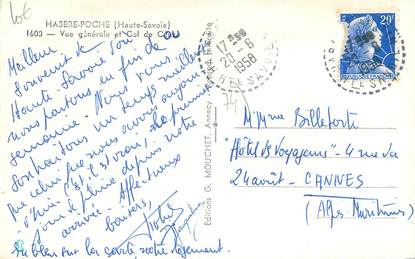 10€
HABERE-POCHE (Haute-Savoie)
1600 - Vue générale et Col de Cou
Meilleur
souvenir de
Haute Savoie d'où
nous partons en fin de
semaine. Nous vous
souhaitons un temps meilleur
que celui que nous avons aujour
d'hui, c'est, il est vrai, le premier
jour de pluie depuis notre
arrivée. Affectueux
baisers,
Au bleu sur la carte, notre logement.
Editions G. MOUCHET, Annecy
17-30
20-6
1958
HTE SAVOIE
20F
REPUBLIQUE FRANÇAISE
M/Mme Billeforte
"Hôtel des Voyageurs" - 4 rue du
24 août - CANNES
(Alpes Maritimes)